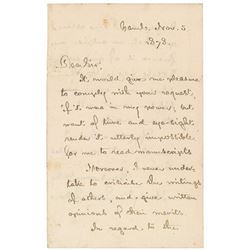 Camb. Nov. 5
1873.
Dear Sir,
It would give me pleasure
to comply with your request,
if it was in my power; but
want of time and eye-sight
render it utterly impossible
for me to read manuscripts
Moreover, I never under-
take to criticise the writings
of others, and give written
opinions of their merits.
In regard to the